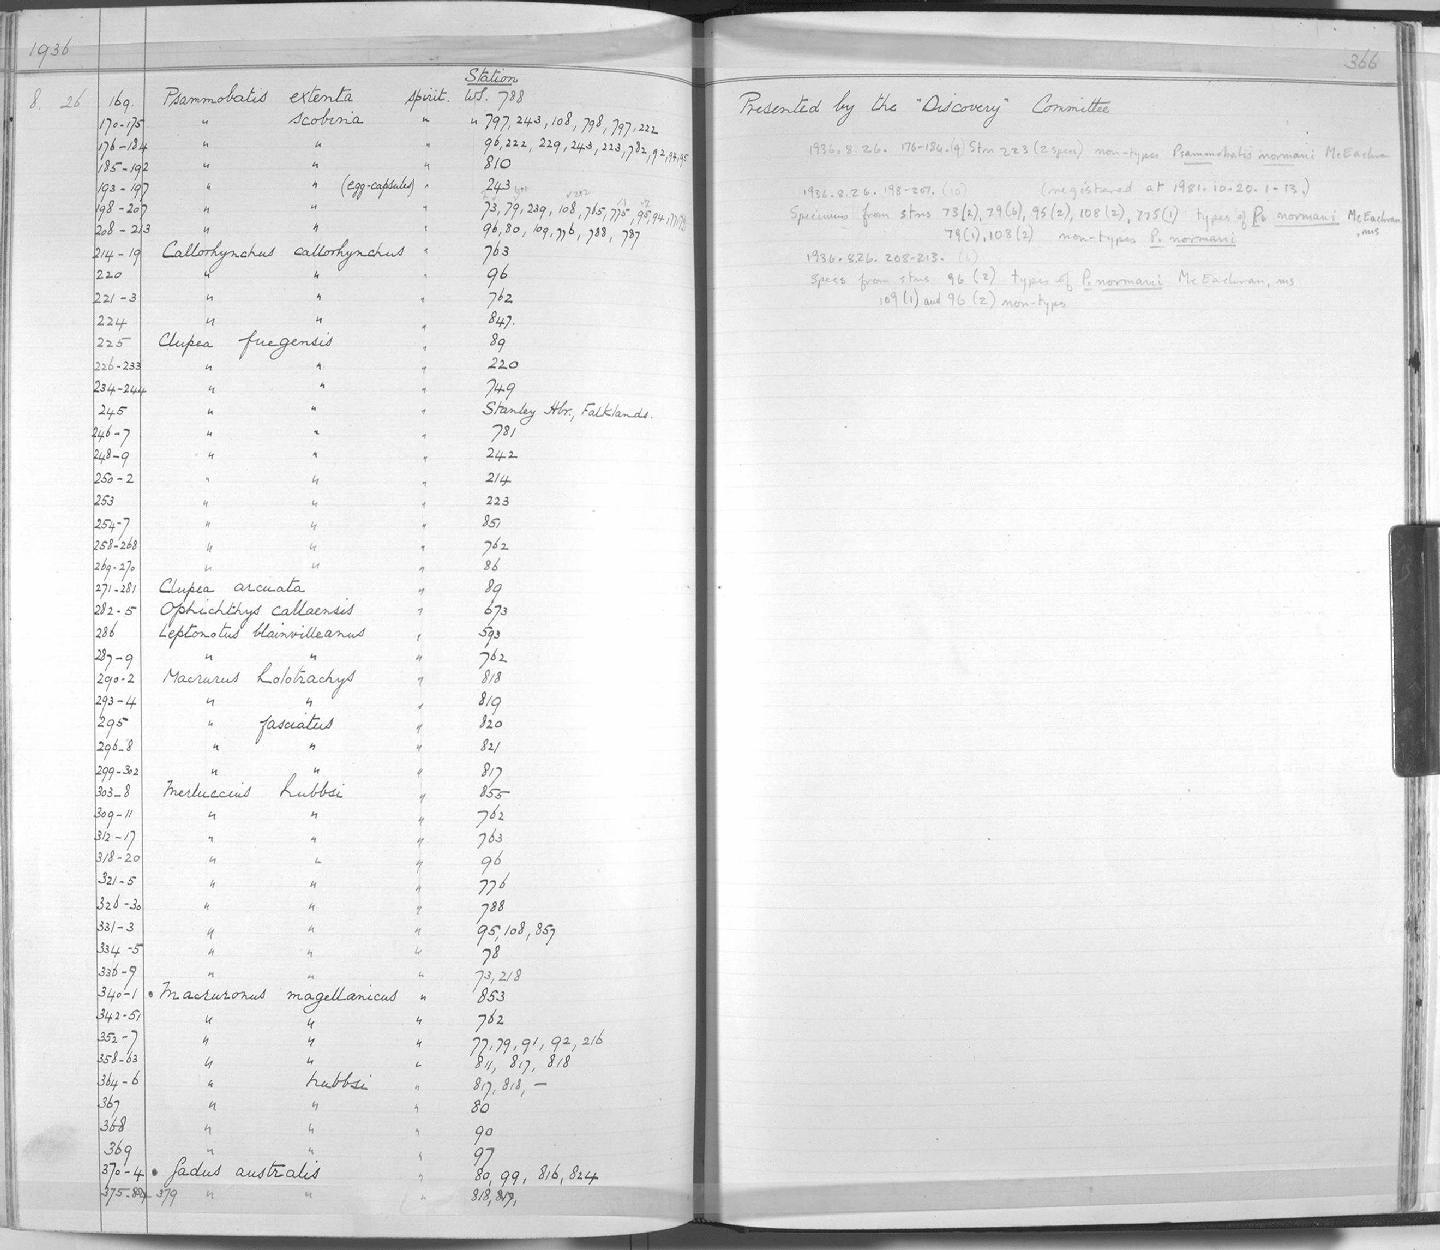 1936
Station
8. 26 169. Psammobatis extenta spirit. WS. 788
170-175 " scobina " " 797, 243, 108, 798, 797, 222
176-184 " " " 96, 222, 229, 243, 223, 782, 92, 94, 95
185-192 " " " 810
193-197 " " (egg-capsules) " 243
198-207 " " " 73, 79, 239, 108, 765, 775, 95, 94,
208-213 " " " 96, 80, 109, 776, 788, 787
214-19 Callorhynchus callorhynchus " 763
220 " " " 96
221-3 " " " 762
224 " " " 847.
225 Clupea fuegensis " 89
226-233 " " " 220
234-244 " " " 749
245 " " " Stanley Hbr., Falklands.
246-7 " " " 781
248-9 " " " 242
250-2 " " " 214
253 " " " 223
254-7 " " " 851
258-268 " " " 762
269-270 " " " 86
271-281 Clupea arcuata " 89
282-5 Ophichthys callaensis " 673
286 Leptonotus blainvilleanus " 593
287-9 " " " 762
290-2 Macrurus holotrachys " 818
293-4 " " " 819
295 " fasciatus " 820
296-8 " " " 821
299-302 " " " 817
303-8 Merluccius hubbsi " 855
309-11 " " " 762
312-17 " " " 763
318-20 " " " 96
321-5 " " " 776
326-30 " " " 788
331-3 " " " 95, 108, 857
334-5 " " " 78
336-9 " " " 73, 218
340-1 • Macruronus magellanicus " 853
342-51 " " " 762
352-7 " " " 77, 79, 91, 92, 216
358-63 " " " 811, 817, 818
364-6 " hubbsi " 817, 818, —
367 " " " 80
368 " " " 90
369 " " " 97
370-4 • Gadus australis " 80, 99, 816, 824
379 " " " 818, 819,
366
Presented by the "Discovery" Committee
1936.8.26. 176-184.(9) Stn 223 (2 specs) non-types Psammobatis normani McEachran
1936.8.26. 198-207. (10) (registered at 1981.10.20.1-13.)
Specimens from stns 73(2), 79(6), 95(2), 108(2), 775(1) types of P. normani McEachran, ms
79(1), 108(2) non-types P. normani
1936.8.26. 208-213. (6)
Specs from stns 96 (2) types of P. normani McEachran, ms
109(1) and 96 (2) non-types